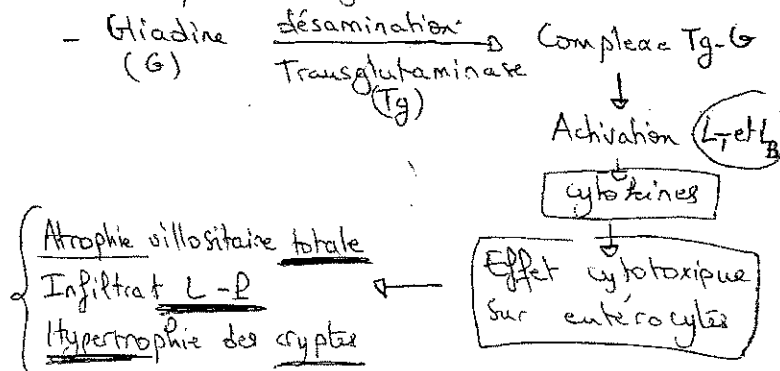 - Gliadine désamination Complexe Tg-G
(G) Transglutaminase
(Tg)
Activation LT et LB
cytokines
Effet cytotoxique
sur entérocytes
Atrophie villositaire totale
Infiltrat L-P
Hypertrophie des cryptes